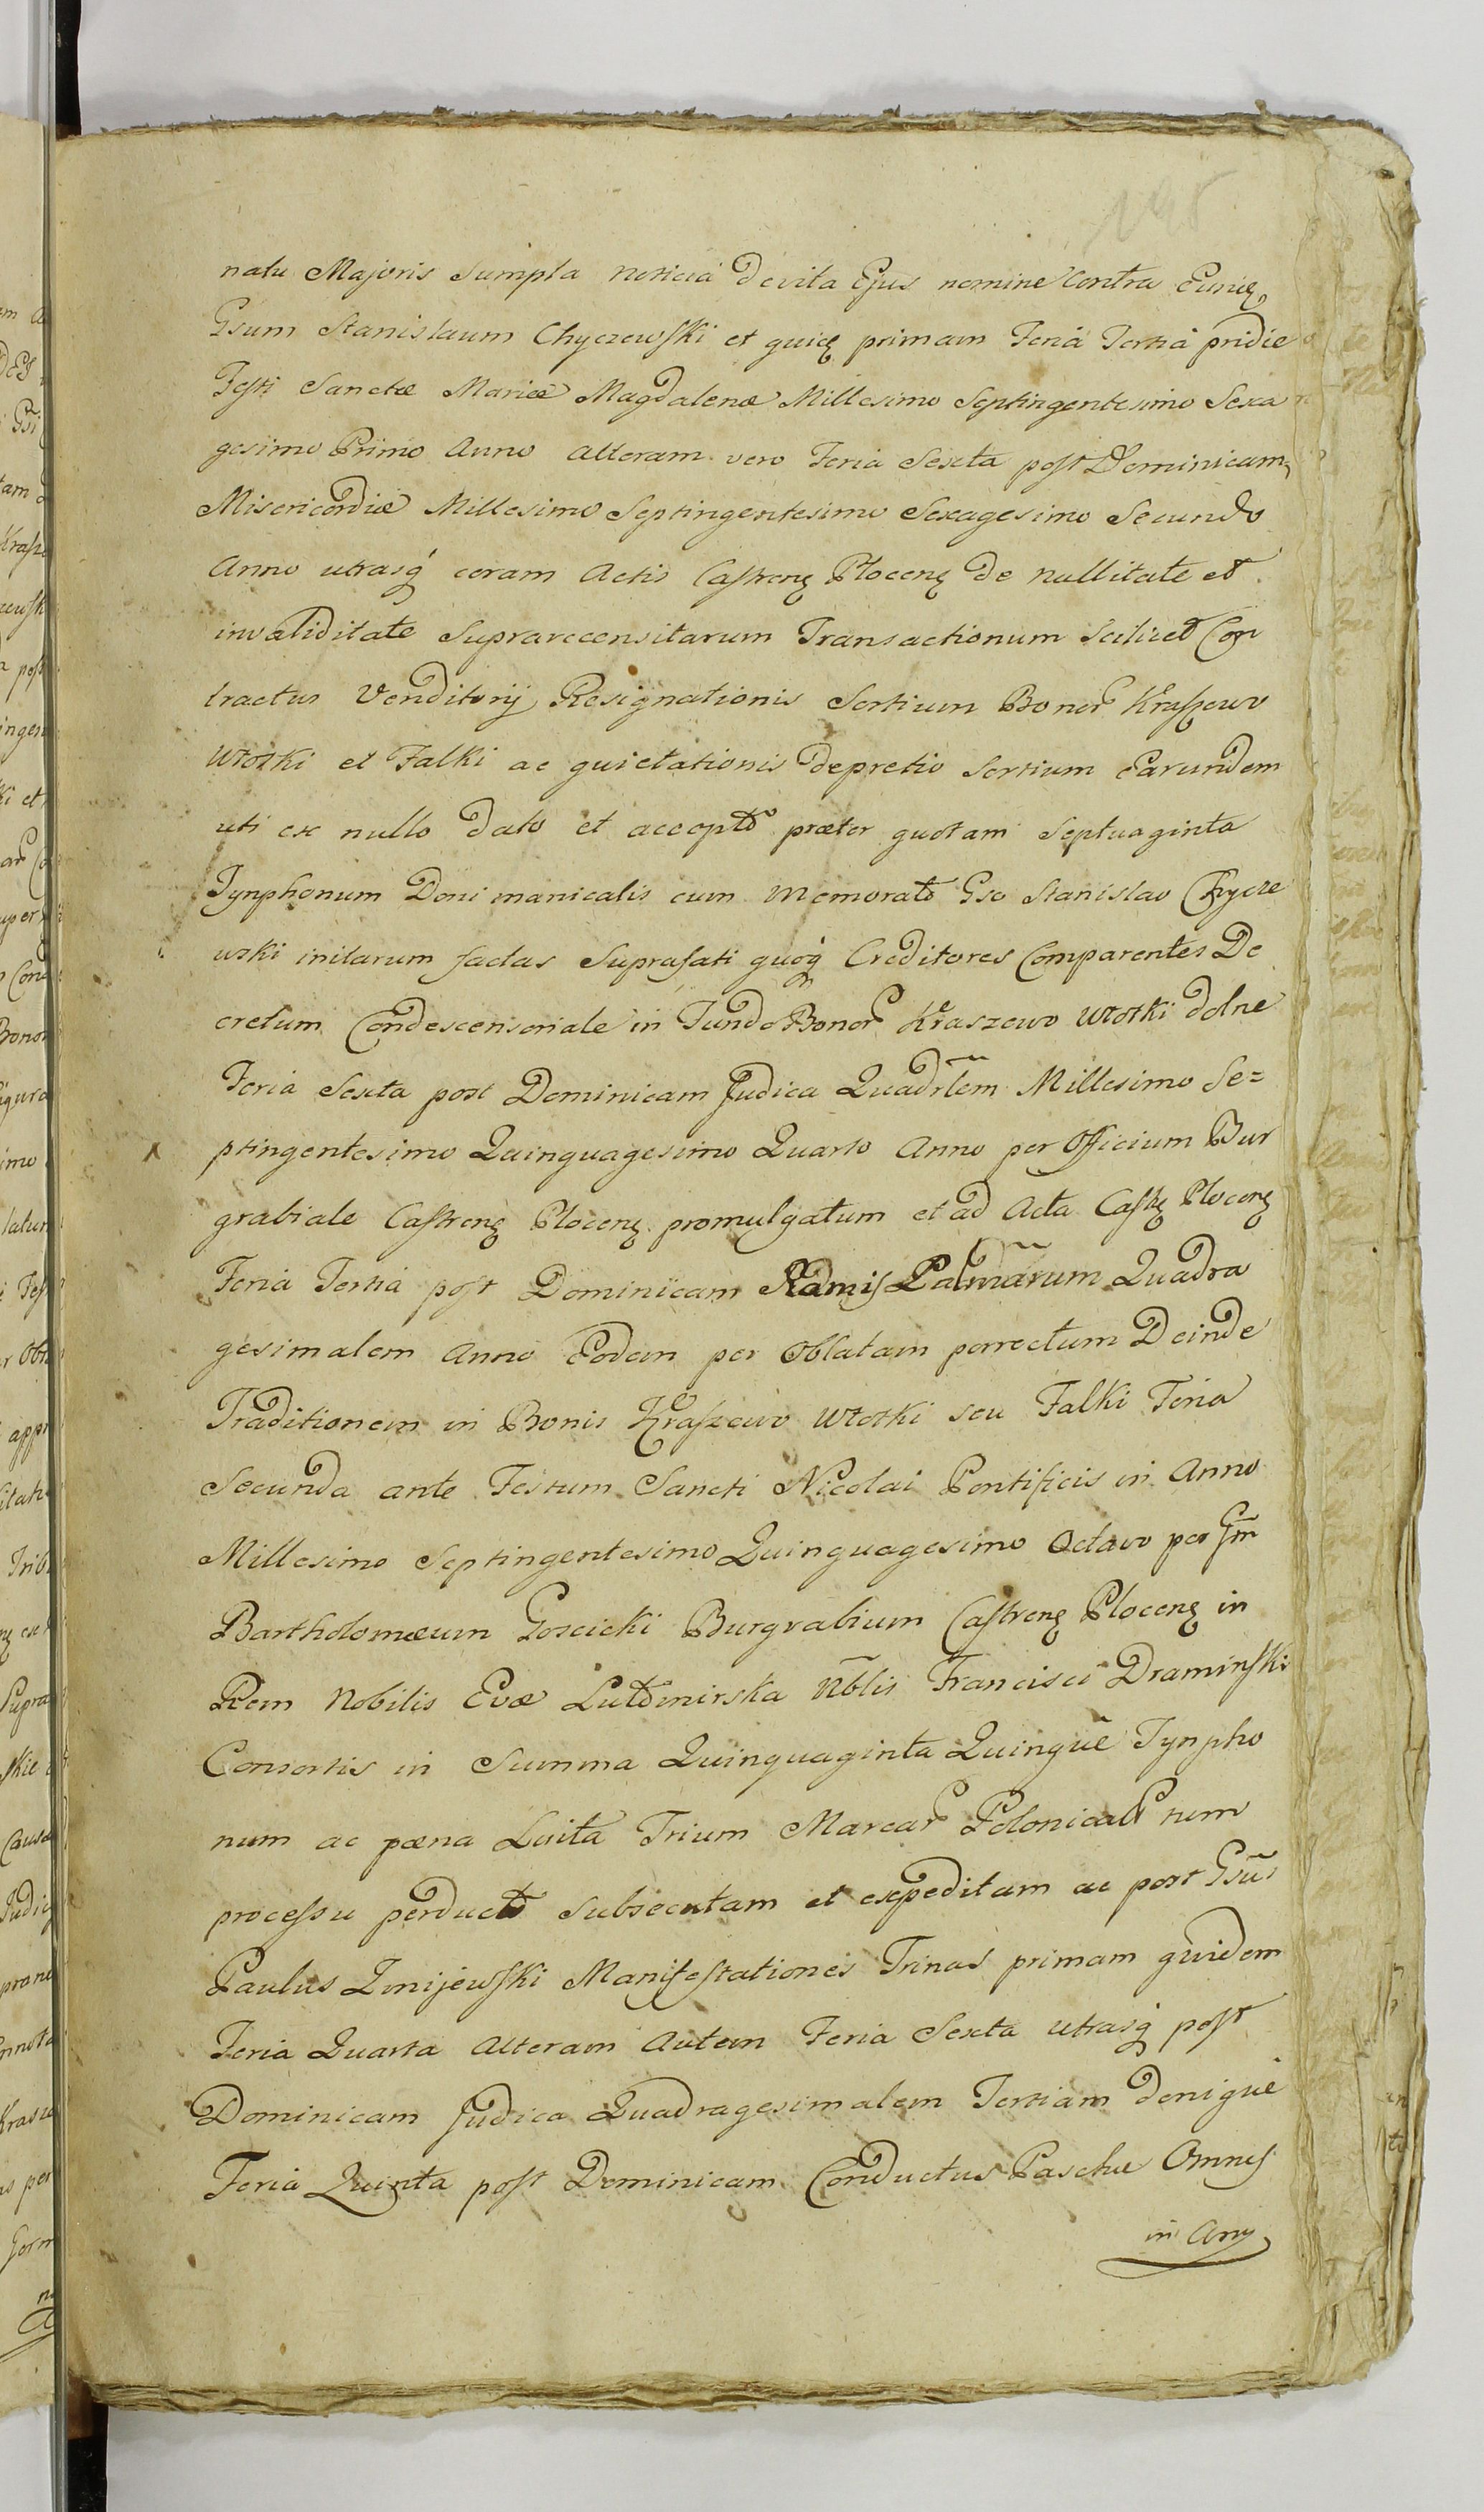 198
natu Majoris Sumpta noticia Devita Ejus nomine Contra Eunde
Gsum Stanislaum Chyczewski et quide primam Feria Tertia pridie
Festi Sanctæ Mariæ Magdalenæ Millesimo Septingentesimo Sexa
gesimo Primo Anno alteram vero Feria Sexta post Dominicam
Misericordiæ Millesimo Septingentesimo Sexagesimo Secundo
Anno utrasq coram Actis Castrens Plocens de nullitate et
invaliditate Suprarecensitarum Transactionum Scilicet Con
tractus Venditorij Resignationis Sortium Bonor Kraszewo
Wrotki et Falki ac quietationis depretio Sortium Earundem
uti ex nullo dato et accepto præter quotam Septuaginta
Tynphonum Doni manicalis cum memorato Gso Stanislao Chycze
wski initarum factas Suprafati quoq Creditores Comparentes De
cretum Condescensoriale in Fundo Bonor Kraszewo Wrotki dolne
Feria Sexta post Dominicam Judica Quadrlem Millesimo Se=
ptingentesimo Quinquagesimo Quarto Anno per Officium Bur
grabiale Castrens Plocens promulgatum et ad Acta Casts Plocens
Feria Tertia post Dominicam Ramis Palmarum Quadra
gesimalem Anno Eodem per Oblatam porrectum Deinde
Traditionem in Bonis Kraszewo Wrotki seu Falki Feria
Secunda ante Festum Sancti Nicolai Pontificis in Anno
Millesimo Septingentesimo Quinquagesimo Octavo per Gm
Bartholomæum Goscicki Burgrabium Castrens Plocens in
Rem Nobilis Evæ Lutomirska Nblis Francisci Draminski
Consortis in Summa Quinquaginta Quinque Tynpho
num ac pæna Luita Trium Marcar Polonical rum
processu perducto subsecutam et expeditam ac post Gsus
Paulus Zmijewski Manifestationes Trinas primam quidem
Feria Quarta Alteram Autem Feria Sexta utrasq post
Dominicam Judica Quadragesimalem Tertiam denique
Feria Quinta post Dominicam Conductus Paschæ Omnes
in Ann